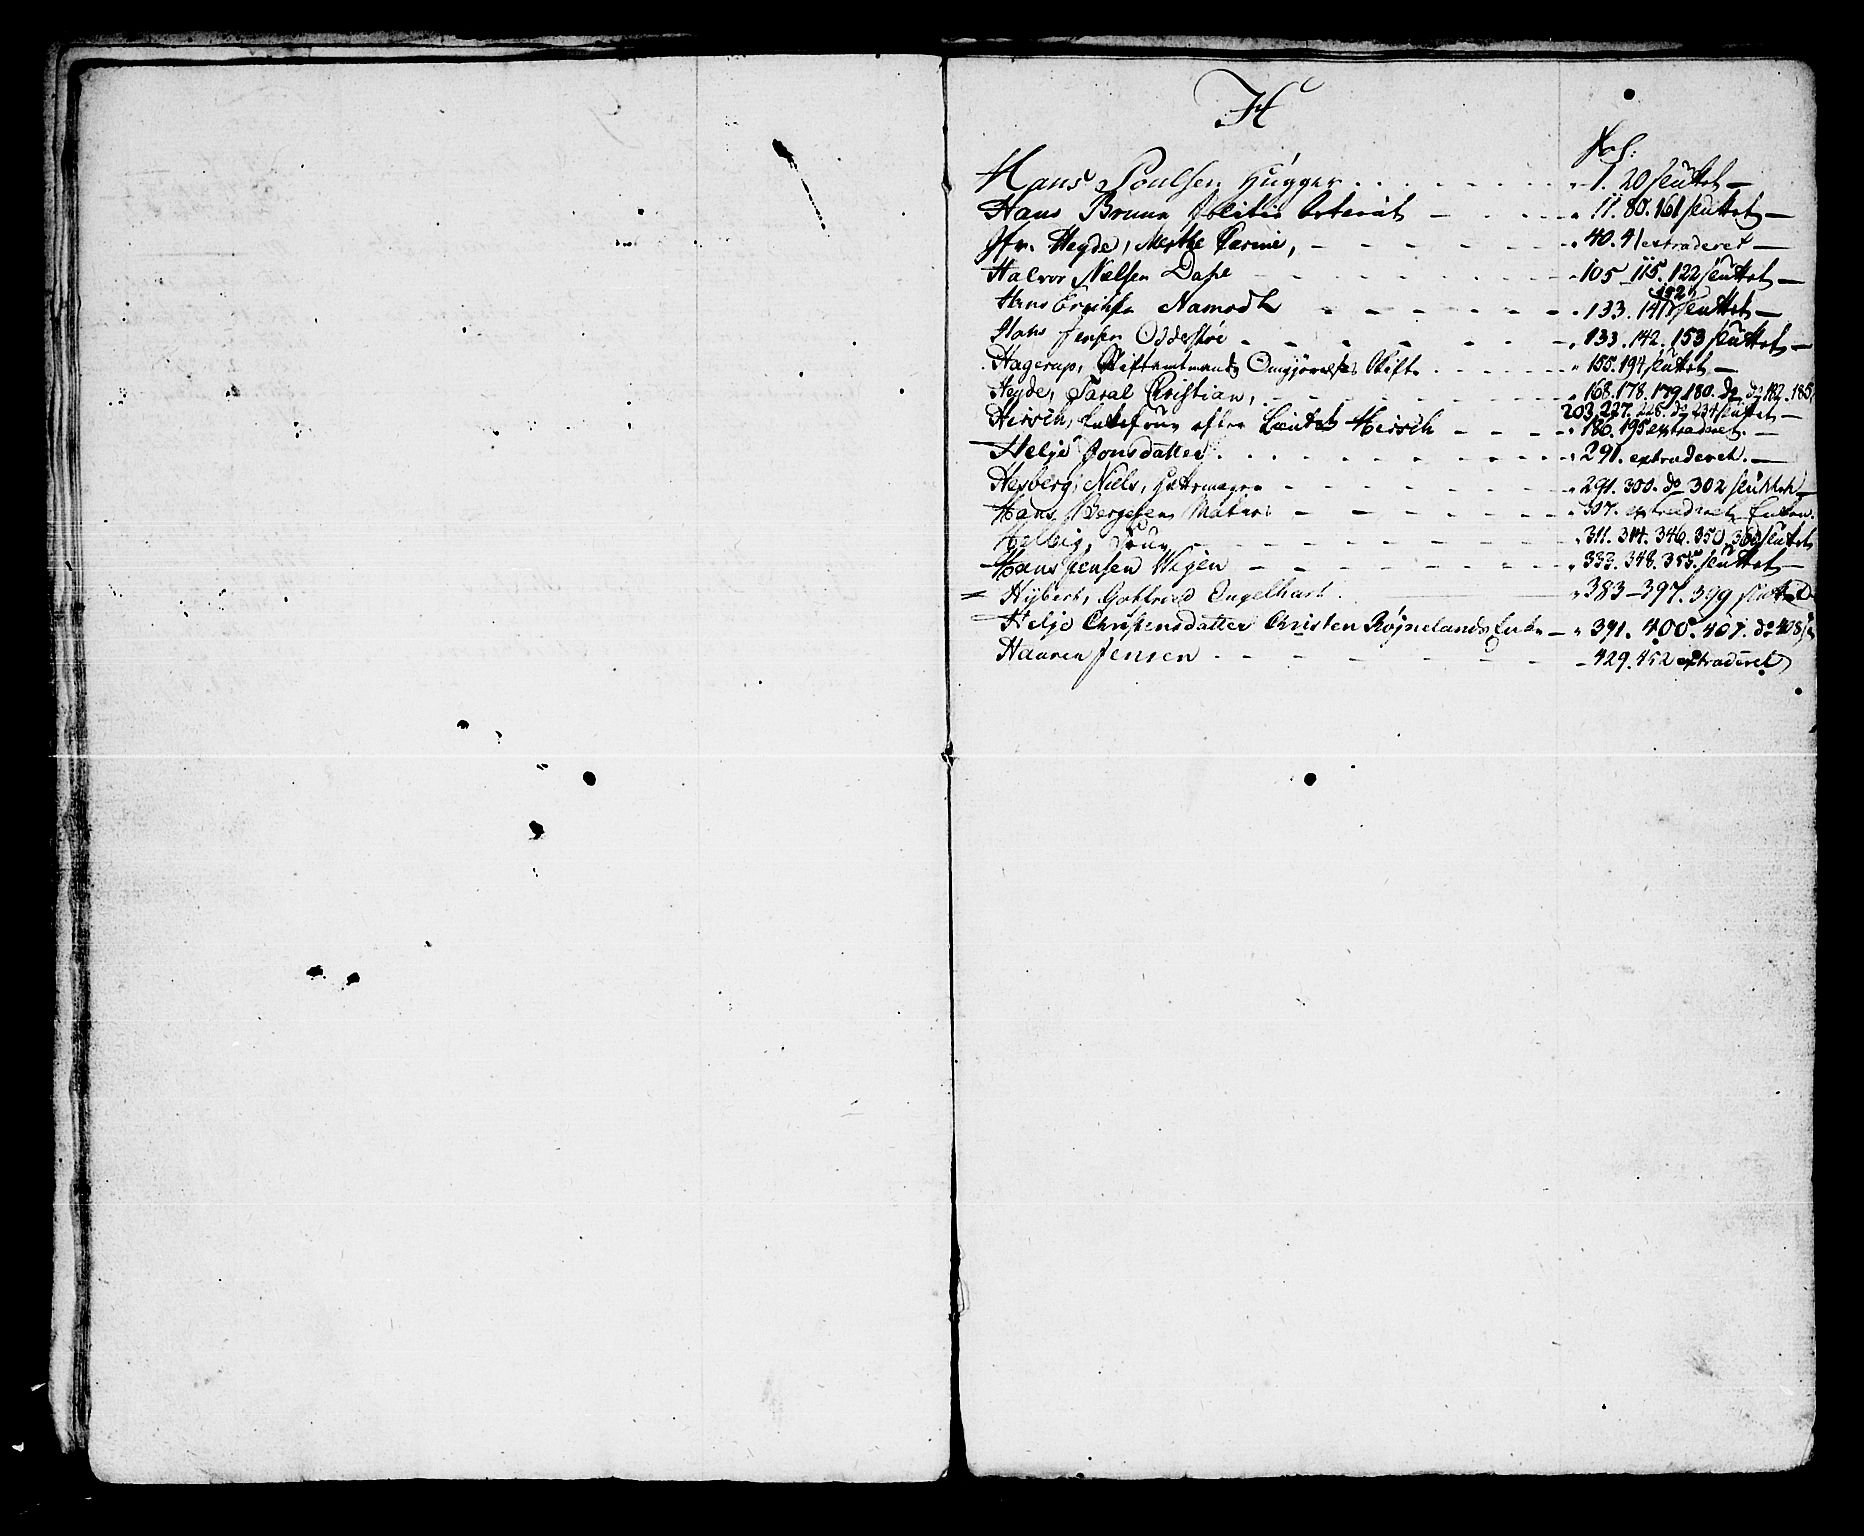 H
Fol:
Hans Poulsen Hugger - 1. 20 sluttet -
Hans Bruun Politie - 11. 80. 161 sluttet -
Jfr. Heyde, Merthe Carine, - 40. 41 extraderet -
Halvor Nielsen Dahl - 105. 115. 122 sluttet -
Hans - 133. 141 sluttet -
Hans Jensen Odderøe - 133. 142. 153 sluttet -
Hagerup, Stiftamtmands Omgjørelses Skifte - 155. 194 sluttet -
Heyde, Taral Christian, - 168. 178. 179. 180. do do 182. 185
203. 227. 228. do 234 sluttet -
Hirsch, Enkefrue efter Lieutnt Hirsch - 186. 195 extraderet. -
Helje Jonsdatter - 291. extraderet. -
Hesberg, Niels, - 291. 300. do 302 sluttet -
Hans Børgesen - 307. extraderet Enken.
Helbig, Frue - 311. 314. 346. 350. 360 sluttet
Hans Jensen Wigen - 333. 348. 355. sluttet -
Hybert, Gotfried Engelhart - 383 - 397. 399 sluttet
Helje Christensdatter Christen Røjnelands Enke - 391. 400. 407. do 408
Hauren Jensen - 429. 452 extraderet